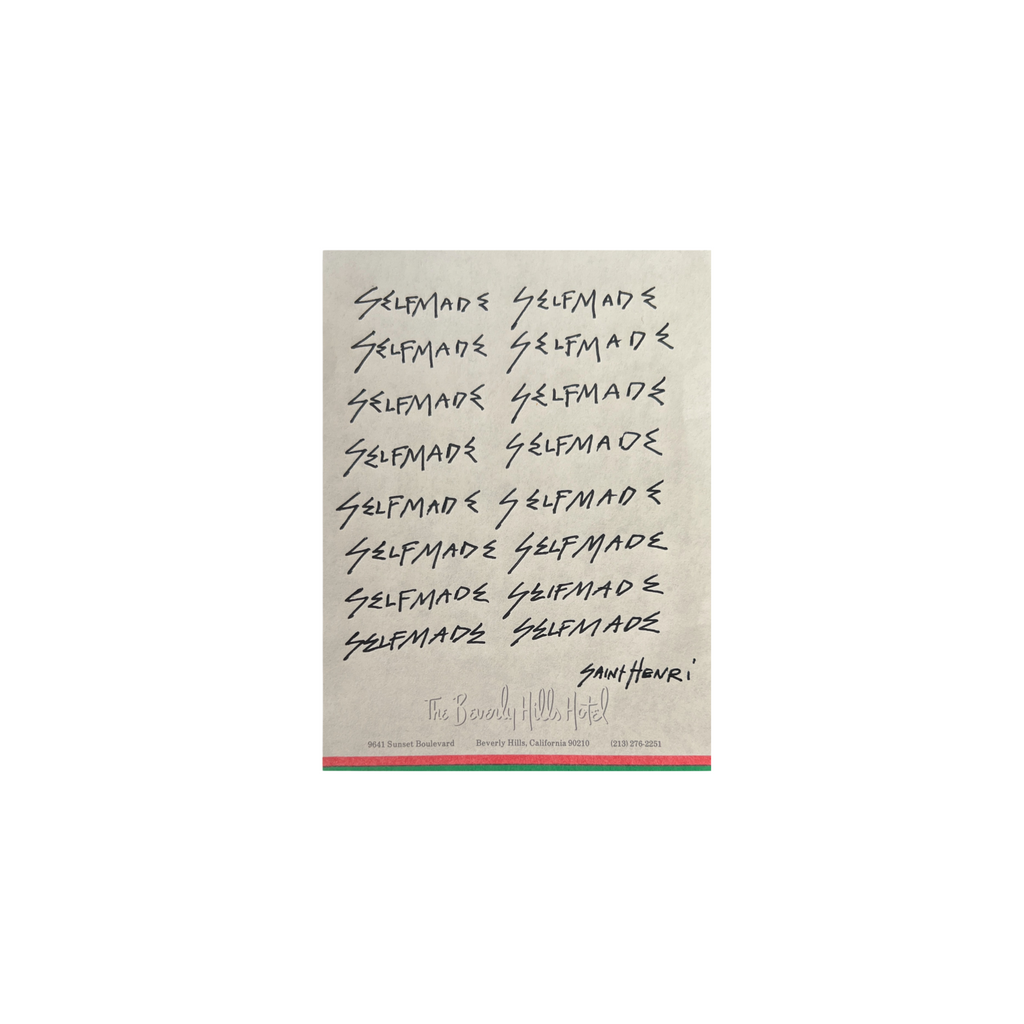 SELFMADE SELFMADE
SELFMADE SELFMADE
SELFMADE SELFMADE
SELFMADE SELFMADE
SELFMADE SELFMADE
SELFMADE SELFMADE
SELFMADE SELFMADE
SELFMADE SELFMADE
SAINT HENRi
The Beverly Hills Hotel
9641 Sunset Boulevard Beverly Hills, California 90210 (213) 276-2251